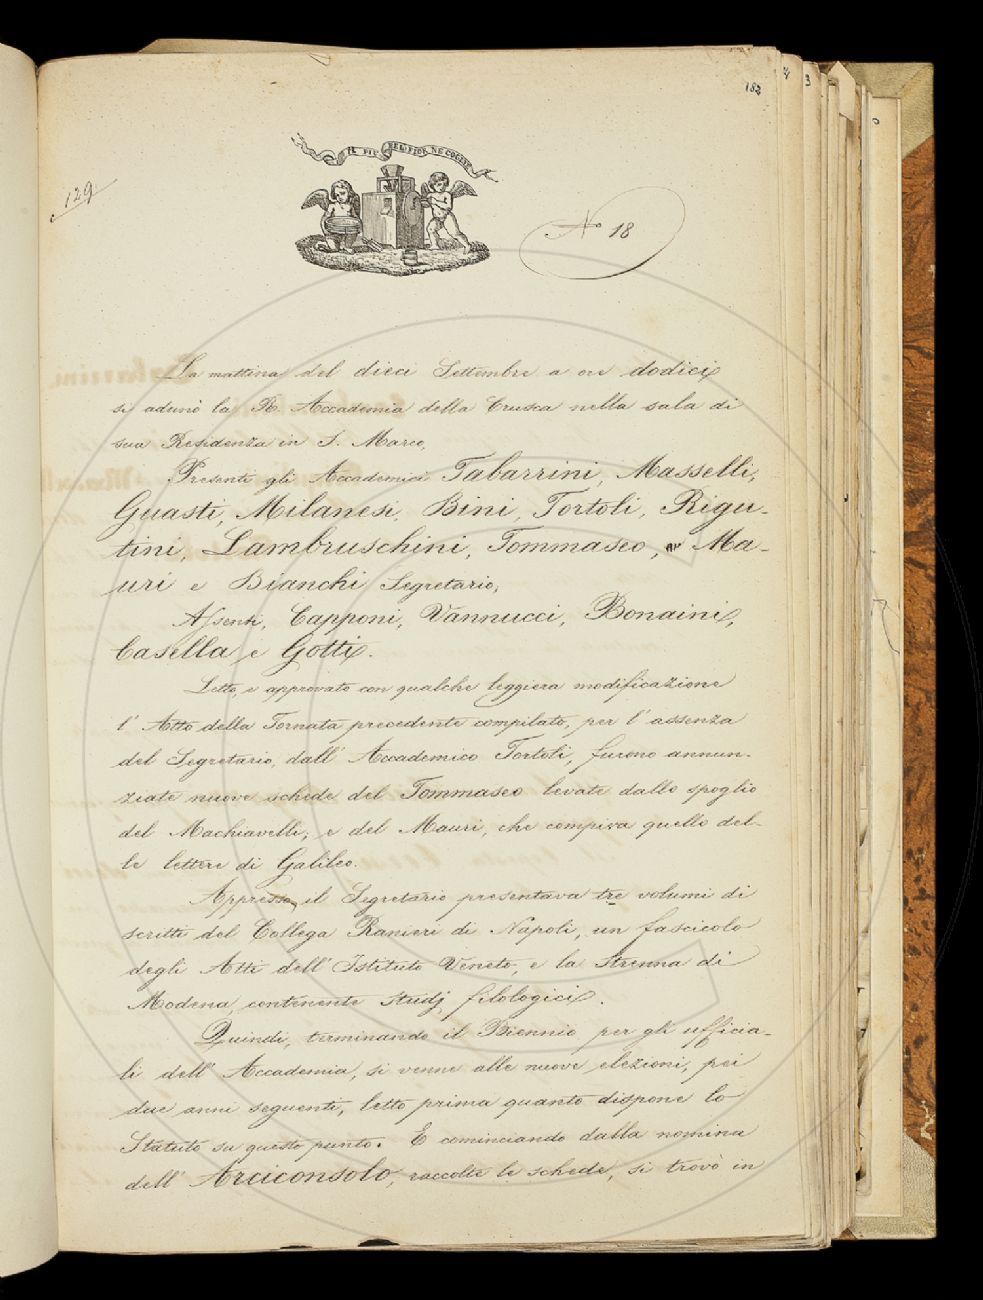 182
129
IL PIÙ BEL FIOR NE COGLIE
N° 18
La mattina del dieci Settembre a ore dodici
si adunò la R. Accademia della Crusca nella sala di
sua Residenza in S. Marco.
Presenti gli Accademici Tabarrini, Masselli,
Guasti, Milanesi, Bini, Tortoli, Rigu-
tini, Lambruschini, Tommaseo, Ma-
uri e Bianchi Segretario;
Assenti, Capponi, Vannucci, Bonaini,
Casella e Gotti.
Letto e approvato con qualche leggiera modificazione
l' Atto della Tornata precedente compilato, per l' assenza
del Segretario, dall' Accademico Tortoli, furono annun-
ziate nuove schede del Tommaseo levate dallo spoglio
del Machiavelli; e del Mauri, che compiva quello del-
le lettere di Galileo.
Appresso, il Segretario presentava tre volumi di
scritti del Collega Ranieri di Napoli, un fascicolo
degli Atti dell' Istituto Veneto, e la Strenna di
Modena, contenente studj filologici.
Quindi, terminando il Biennio per gli ufficia-
li dell' Accademia, si venne alle nuove elezioni, pei
due anni seguenti, letto prima quanto dispone lo
Statuto su questo punto. E cominciando dalla nomina
dell' Arciconsolo, raccolte le schede, si trovò in